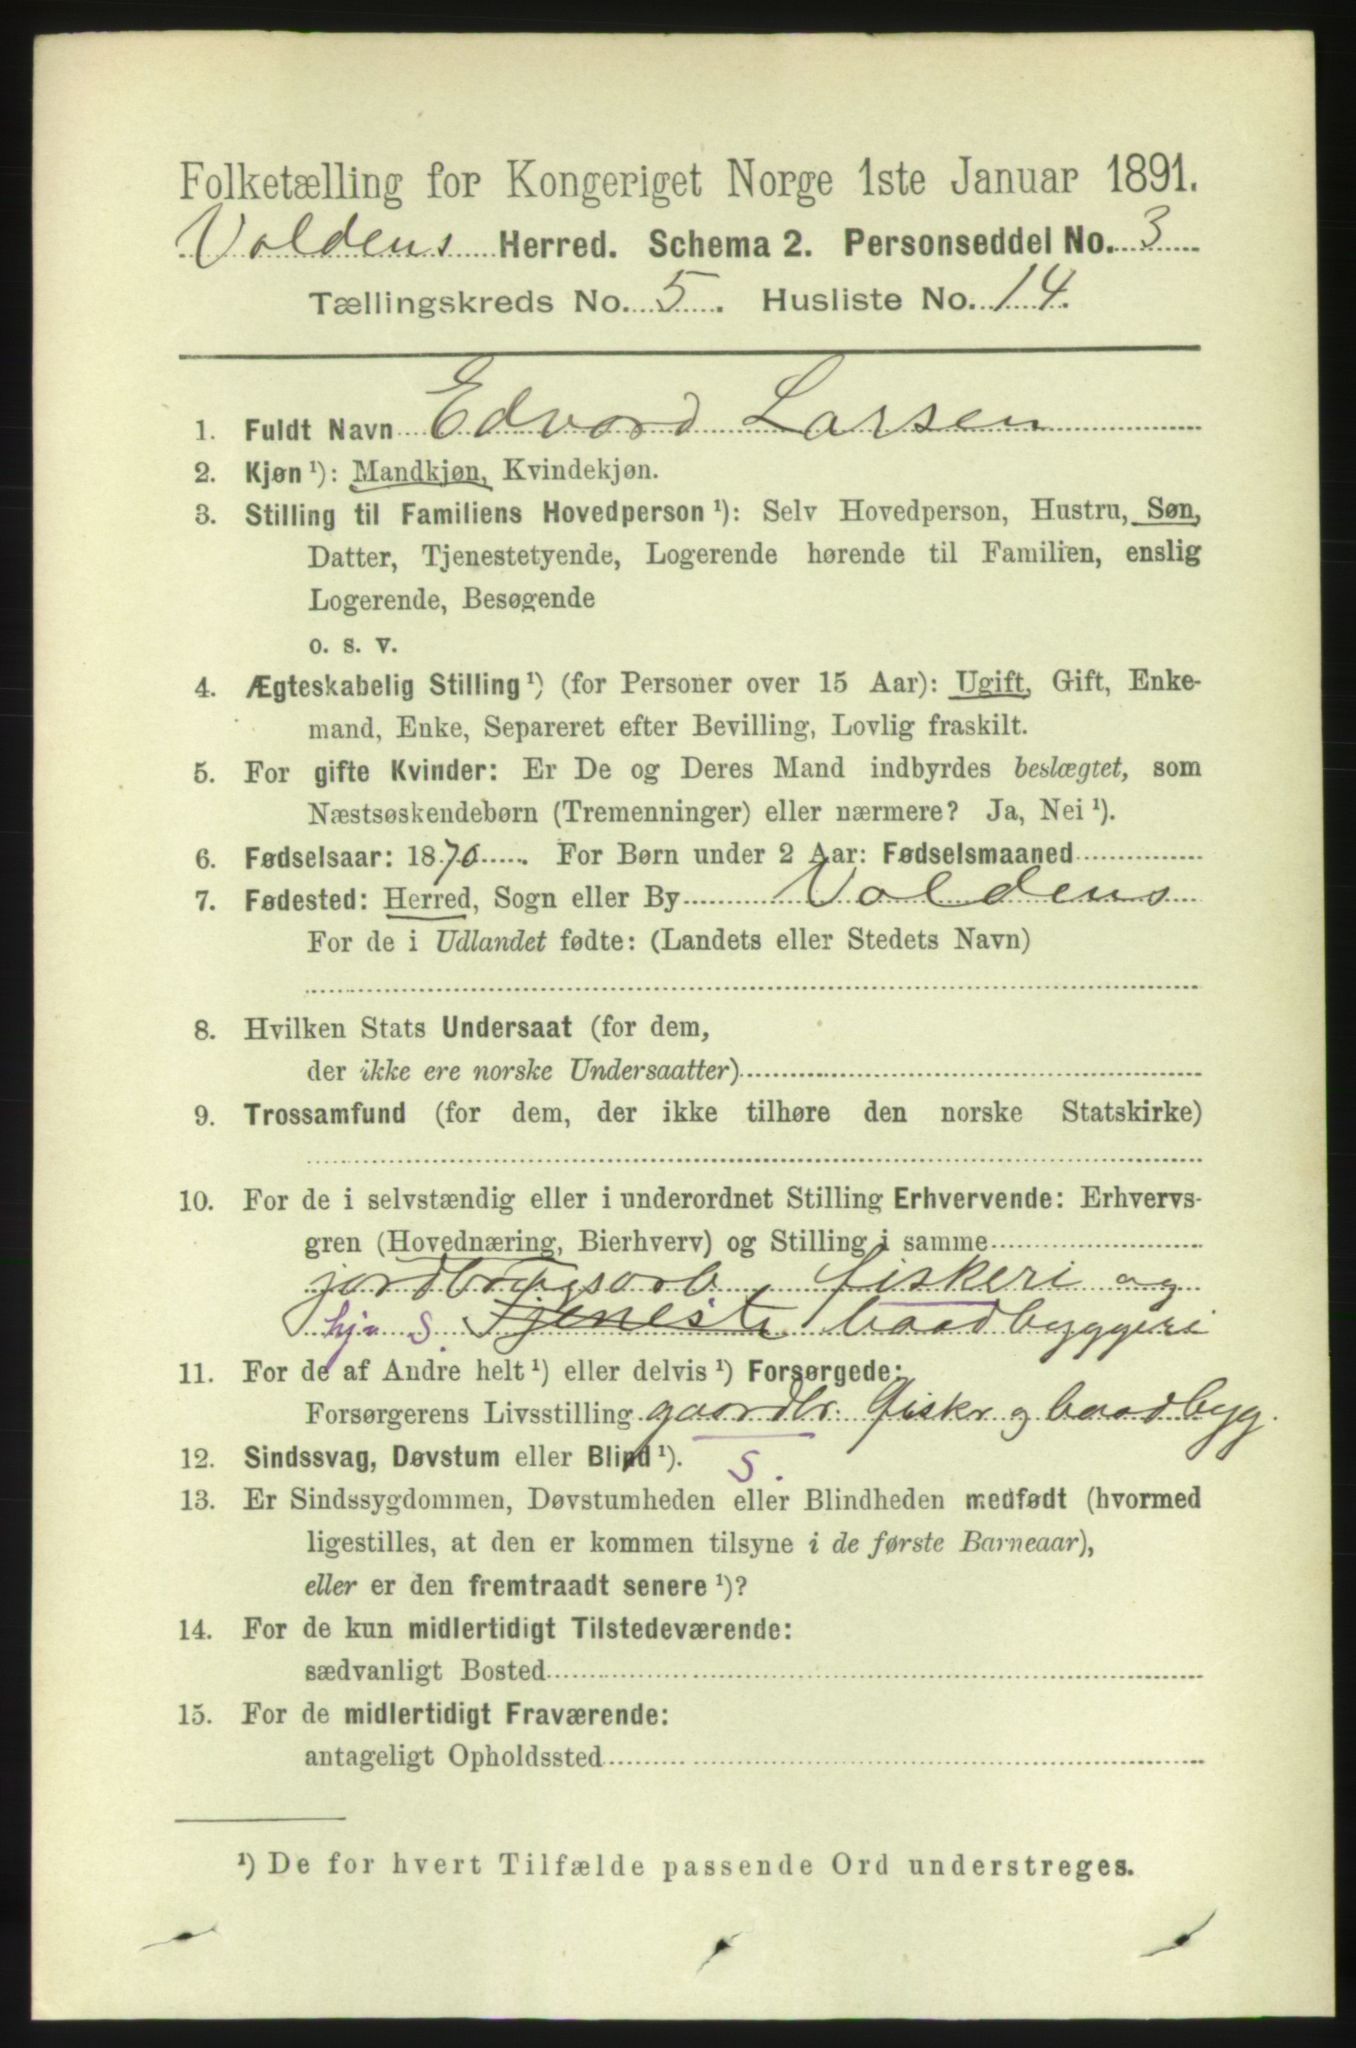 Folketælling for Kongeriget Norge 1ste Januar 1891.
Voldens Herred. Schema 2. Personseddel No. 3
Tællingskreds No. 5. Husliste No. 14.
1. Fuldt Navn Edvard Larsen
2. Kjøn ¹): Mandkjøn, Kvindekjøn.
3. Stilling til Familiens Hovedperson ¹): Selv Hovedperson, Hustru, Søn,
Datter, Tjenestetyende, Logerende hørende til Familien, enslig
Logerende, Besøgende
o. s. v.
4. Ægteskabelig Stilling ¹) (for Personer over 15 Aar): Ugift, Gift, Enke-
mand, Enke, Separeret efter Bevilling, Lovlig fraskilt.
5. For gifte Kvinder: Er De og Deres Mand indbyrdes beslægtet, som
Næstsøskendebørn (Tremenninger) eller nærmere? Ja, Nei ¹).
6. Fødselsaar: 1870. For Børn under 2 Aar: Fødselsmaaned
7. Fødested: Herred, Sogn eller By Voldens
For de i Udlandet fødte: (Landets eller Stedets Navn)
8. Hvilken Stats Undersaat (for dem,
der ikke ere norske Undersaatter)
9. Trossamfund (for dem, der ikke tilhøre den norske Statskirke)
10. For de i selvstændig eller i underordnet Stilling Erhvervende: Erhvervs-
gren (Hovednæring, Bierhverv) og Stilling i samme
jordbrugsarb. fiskeri og
hja S. Tjeneste baadbyggeri
11. For de af Andre helt ¹) eller delvis ¹) Forsørgede:
Forsørgerens Livsstilling gaardbr. fiskr og baadbyg.
12. Sindssvag, Døvstum eller Blind ¹). S.
13. Er Sindssygdommen, Døvstumheden eller Blindheden medfødt (hvormed
ligestilles, at den er kommen tilsyne i de første Barneaar),
eller er den fremtraadt senere ¹)?
14. For de kun midlertidigt Tilstedeværende:
sædvanligt Bosted
15. For de midlertidigt Fraværende:
antageligt Opholdssted
¹) De for hvert Tilfælde passende Ord understreges.